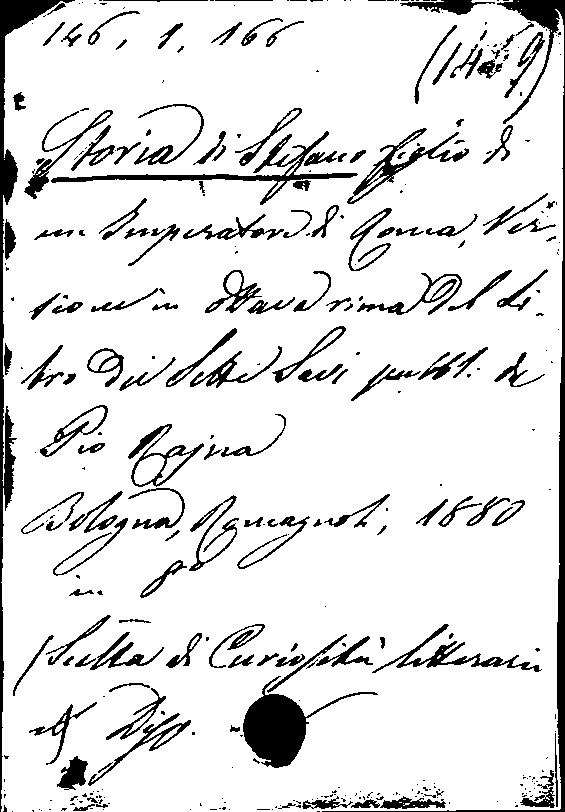 146, 1, 166
Storia di Stefano figlio di
un Imperatore di Roma, Ver-
sione in ottava rima del Li-
bro dei Sette Savi pubbl. da
Pio Rajna
Bologna, Romagnoli, 1880
in 8°
(Scelta di Curiosità litterarie
Disp.